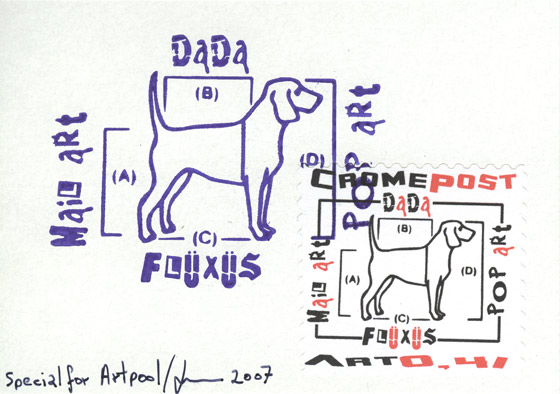 DaDa
(B)
Mail aRt
(A)
(D)
POP aRt
(C)
FLUXUS
CROMEPOST
DaDa
(B)
Mail aRt
(A)
(D)
POP aRt
(C)
FLUXUS
ART0,41
Special for Artpool/
2007